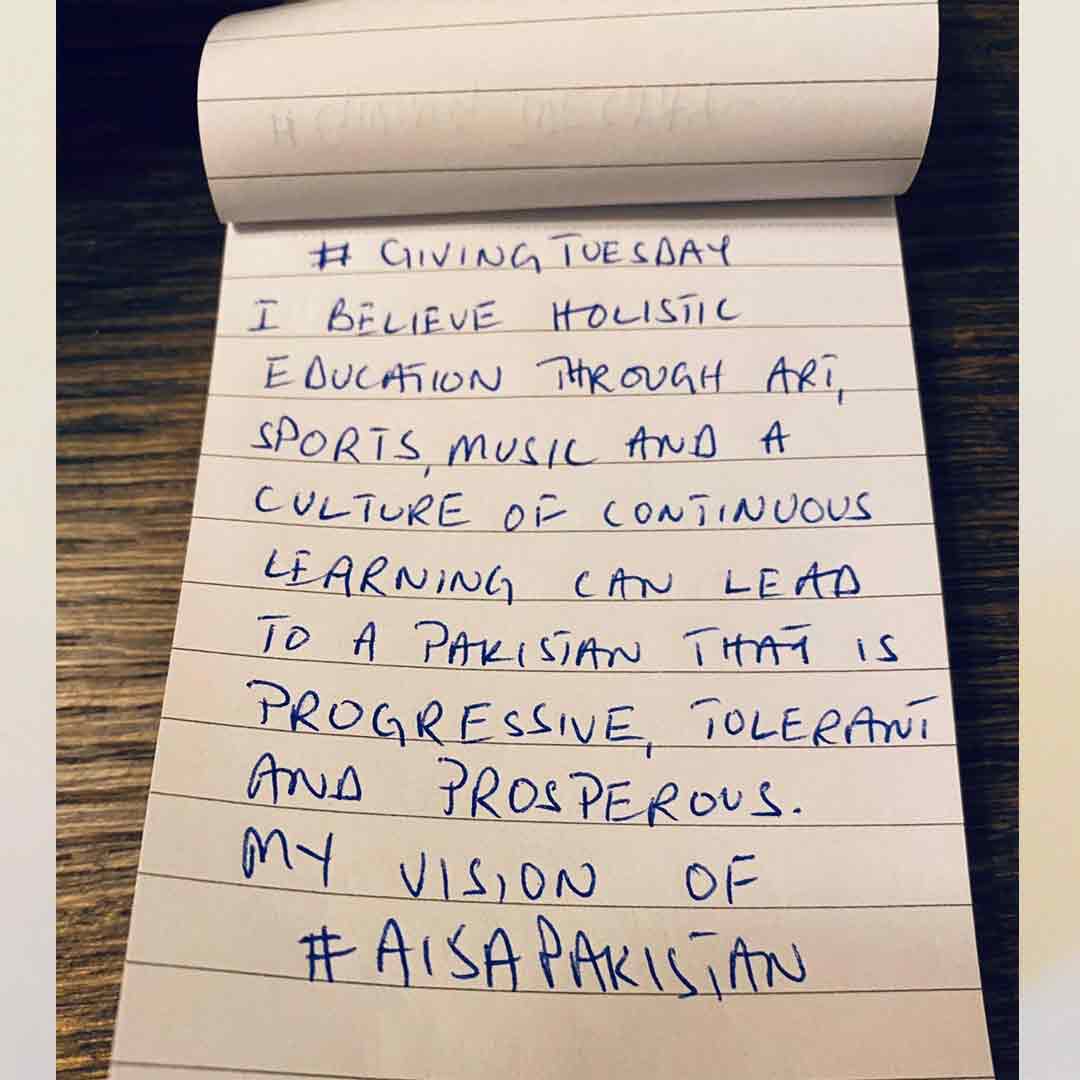 # GIVINGTUESDAY
I BELIEVE HOLISTIC
EDUCATION THROUGH ART,
SPORTS, MUSIC AND A
CULTURE OF CONTINUOUS
LEARNING CAN LEAD
TO A PAKISTAN THAT IS
PROGRESSIVE, TOLERANT
AND PROSPEROUS.
MY VISION OF
#AISAPAKISTAN